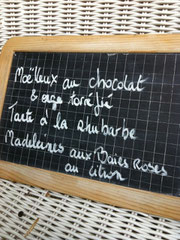 Moëlleux au chocolat
& torréfié
Tarte à la rhubarbe
Madeleines aux Baies Roses
au citron